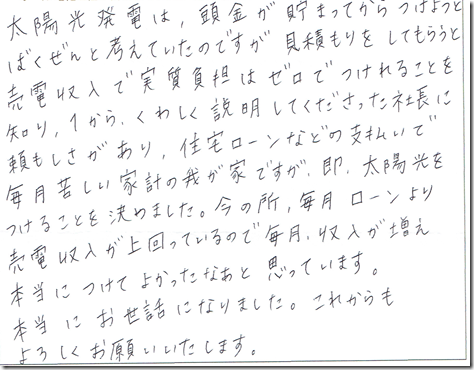 太陽光発電は，頭金が貯まってからつけようと
ばくぜんと考えていたのですが見積もりをしてもらうと
売電収入で実質負担はゼロでつけれることを
知り，1から，くわしく説明してくださった社長に
頼もしさがあり，住宅ローンなどの支払いで
毎月苦しい家計の我が家ですが，即，太陽光を
つけることを決めました。今の所，毎月ローンより
売電収入が上回っているので毎月，収入が増え
本当につけてよかったなあと思っています。
本当にお世話になりました。これからも
よろしくお願いいたします。